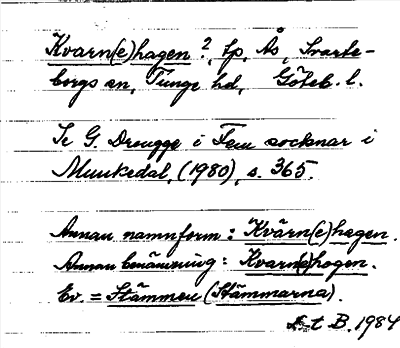 Kvarn(e)hagen ?, tp, Ås, Svarte-
borgs sn, Tunge hd, Göteb. l.
Se G. Drougge i Fem socknar i
Munkedal, (1980), s. 365.
Annan namnform: Kvärn(e)hagen.
Annan benämning: Kvarn(e)hogen.
Ev. = Stämmen (Stämmarna).
B. 1984